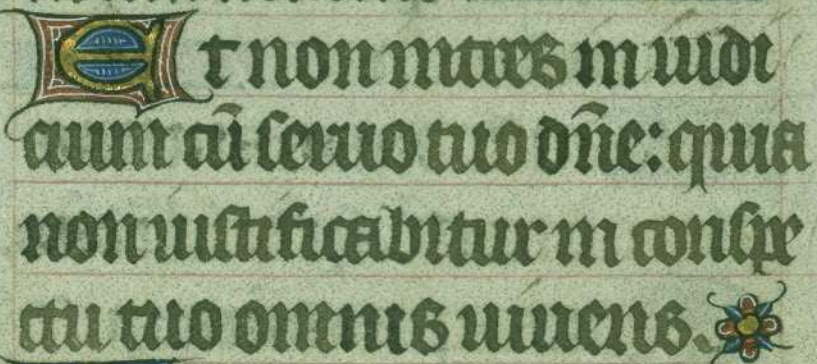 Et non intres in iudi
cium cū seruo tuo dn̄e: quia
non iustificabitur in conspe
ctu tuo omnis uiuens.